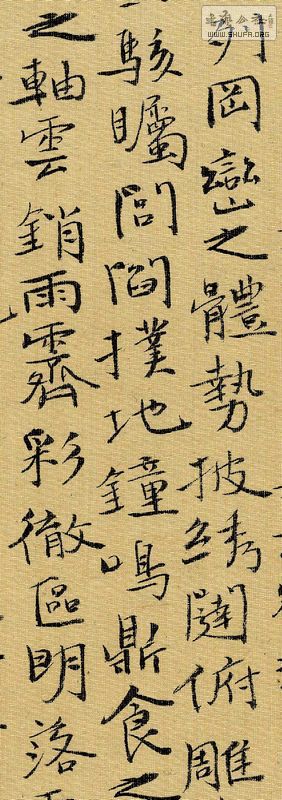 岡巒之體勢披綉闥俯雕
駭矚閭閻撲地鐘鳴鼎食之
之軸雲銷雨霽彩徹區明落
WWW.SHUFA.ORG